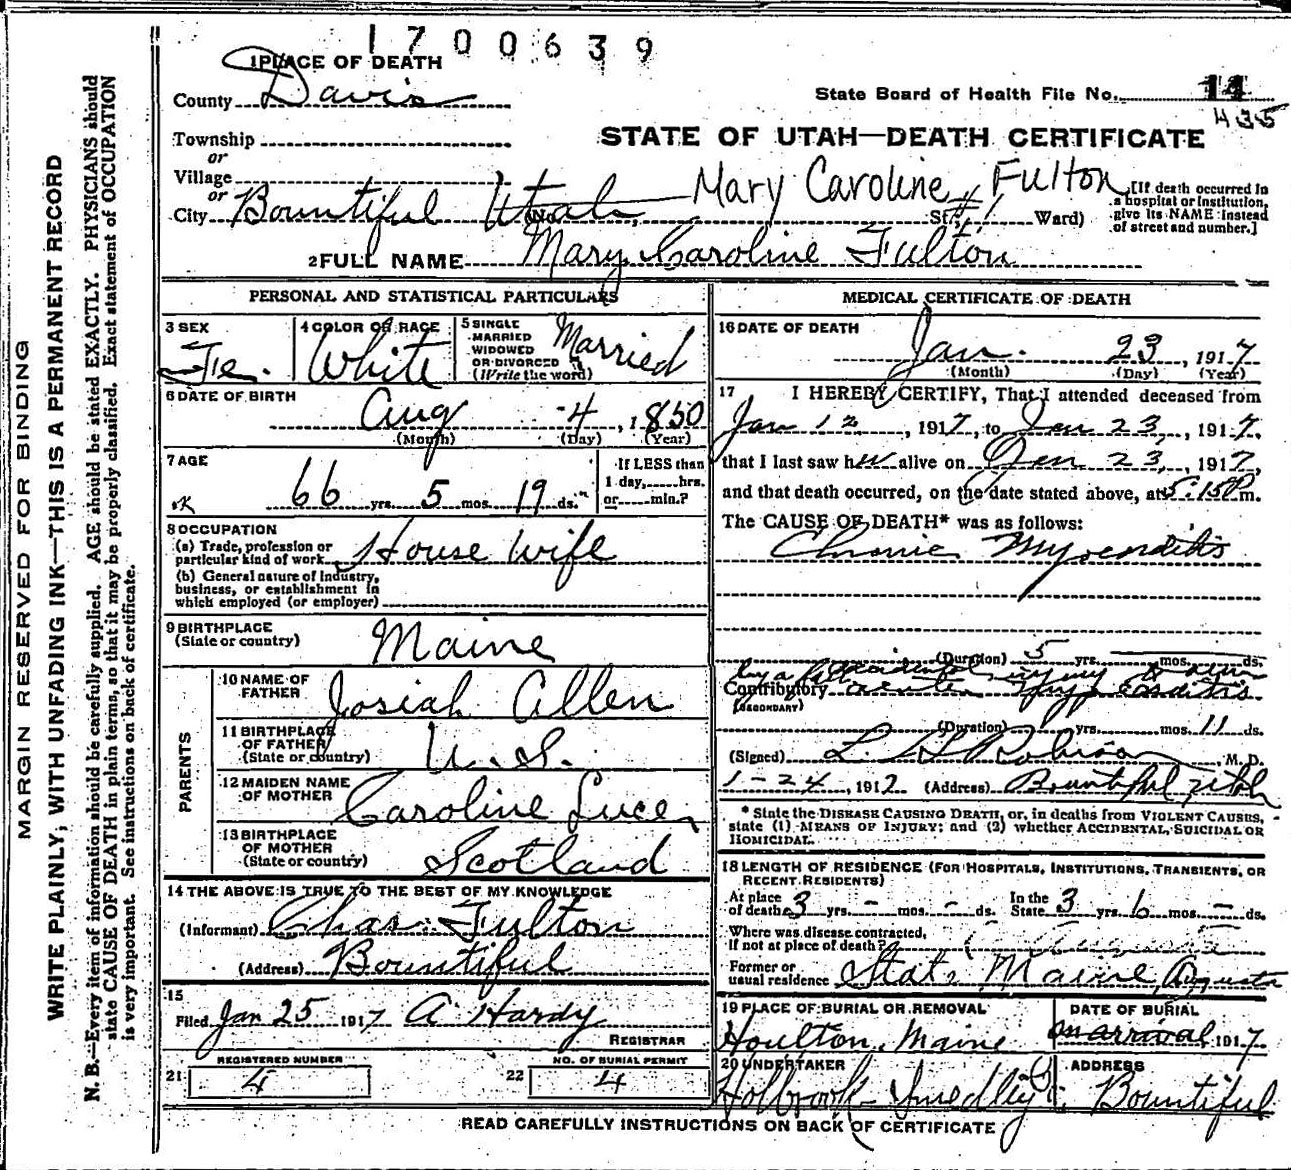 1700639
1 PLACE OF DEATH
County Davis
State Board of Health File No. 14
435
STATE OF UTAH—DEATH CERTIFICATE
Township
or
Village
or
City Bountiful Utah (No. St. #1 Ward)
Mary Caroline Fulton
[If death occurred in a hospital or institution, give its NAME instead of street and number.]
2 FULL NAME Mary Caroline Fulton
PERSONAL AND STATISTICAL PARTICULARS
3 SEX Fe.
4 COLOR OR RACE White
5 SINGLE MARRIED WIDOWED OR DIVORCED (Write the word) Married
6 DATE OF BIRTH
Aug 4, 1850
(Month) (Day) (Year)
7 AGE
66 yrs. 5 mos. 19 ds.
If LESS than 1 day, hrs. or min.?
8 OCCUPATION
(a) Trade, profession or particular kind of work House Wife
(b) General nature of Industry, business, or establishment in which employed (or employer)
9 BIRTHPLACE
(State or country) Maine
PARENTS
10 NAME OF FATHER Josiah Allen
11 BIRTHPLACE OF FATHER (State or country) U. S.
12 MAIDEN NAME OF MOTHER Caroline Luce
13 BIRTHPLACE OF MOTHER (State or country) Scotland
14 THE ABOVE IS TRUE TO THE BEST OF MY KNOWLEDGE
(Informant) Chas. Fulton
(Address) Bountiful
15
Filed Jan 25 1917 A Hardy
REGISTRAR
REGISTERED NUMBER
21 4
NO. OF BURIAL PERMIT
22 4
MEDICAL CERTIFICATE OF DEATH
16 DATE OF DEATH
Jan. 23, 1917
(Month) (Day) (Year)
17 I HEREBY CERTIFY, That I attended deceased from
Jan 12, 1917, to Jan 23, 1917,
that I last saw her alive on Jan 23, 1917,
and that death occurred, on the date stated above, at 5:15 P m.
The CAUSE OF DEATH* was as follows:
Chronic Myocarditis
(Duration) 5 yrs. mos. ds.
by a fall accidental injury to
Contributory acute Myocarditis
(SECONDARY)
(Duration) yrs. mos. 11 ds.
(Signed) L. Robinson, M. D.
1-24, 1917 (Address) Bountiful Utah
* State the DISEASE CAUSING DEATH, or, in deaths from VIOLENT CAUSES, state (1) MEANS OF INJURY; and (2) whether ACCIDENTAL, SUICIDAL OR HOMICIDAL.
18 LENGTH OF RESIDENCE (FOR HOSPITALS, INSTITUTIONS, TRANSIENTS, OR RECENT RESIDENTS)
At place of death 3 yrs. - mos. - ds. In the State 3 yrs. 6 mos. - ds.
Where was disease contracted, If not at place of death?
Former or usual residence State Maine, Augusta
19 PLACE OF BURIAL OR REMOVAL
Houlton, Maine
DATE OF BURIAL
on arrival 1917
20 UNDERTAKER
Holbrook Smedley
ADDRESS
Bountiful
READ CAREFULLY INSTRUCTIONS ON BACK OF CERTIFICATE
MARGIN RESERVED FOR BINDING
WRITE PLAINLY, WITH UNFADING INK—THIS IS A PERMANENT RECORD
N. B.—Every item of information should be carefully supplied. AGE should be stated EXACTLY. PHYSICIANS should
state CAUSE OF DEATH in plain terms, so that it may be properly classified. Exact statement of OCCUPATION
is very important. See instructions on back of certificate.